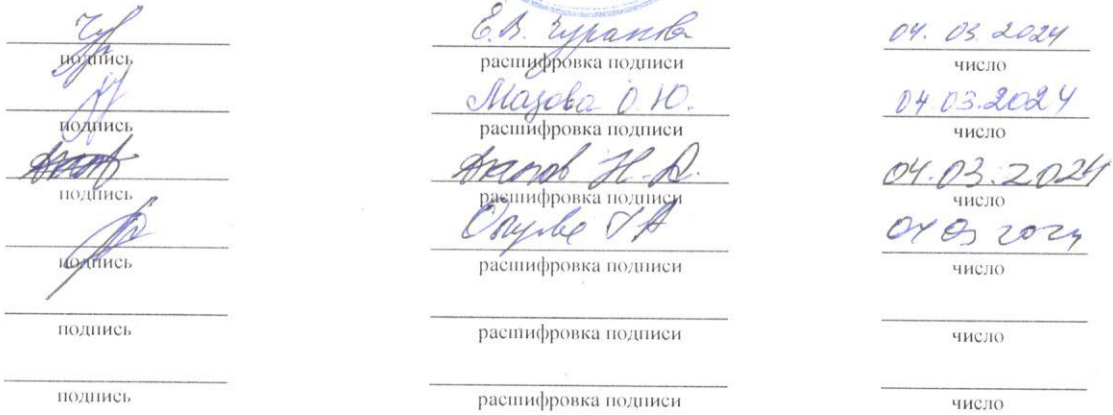 Е.В. Чуранова 04.03.2024
подпись расшифровка подписи число
Мазова О.Ю. 04.03.2024
подпись расшифровка подписи число
Н.А. 04.03.2024
подпись расшифровка подписи число
04 03 2024
подпись расшифровка подписи число
подпись расшифровка подписи число
подпись расшифровка подписи число